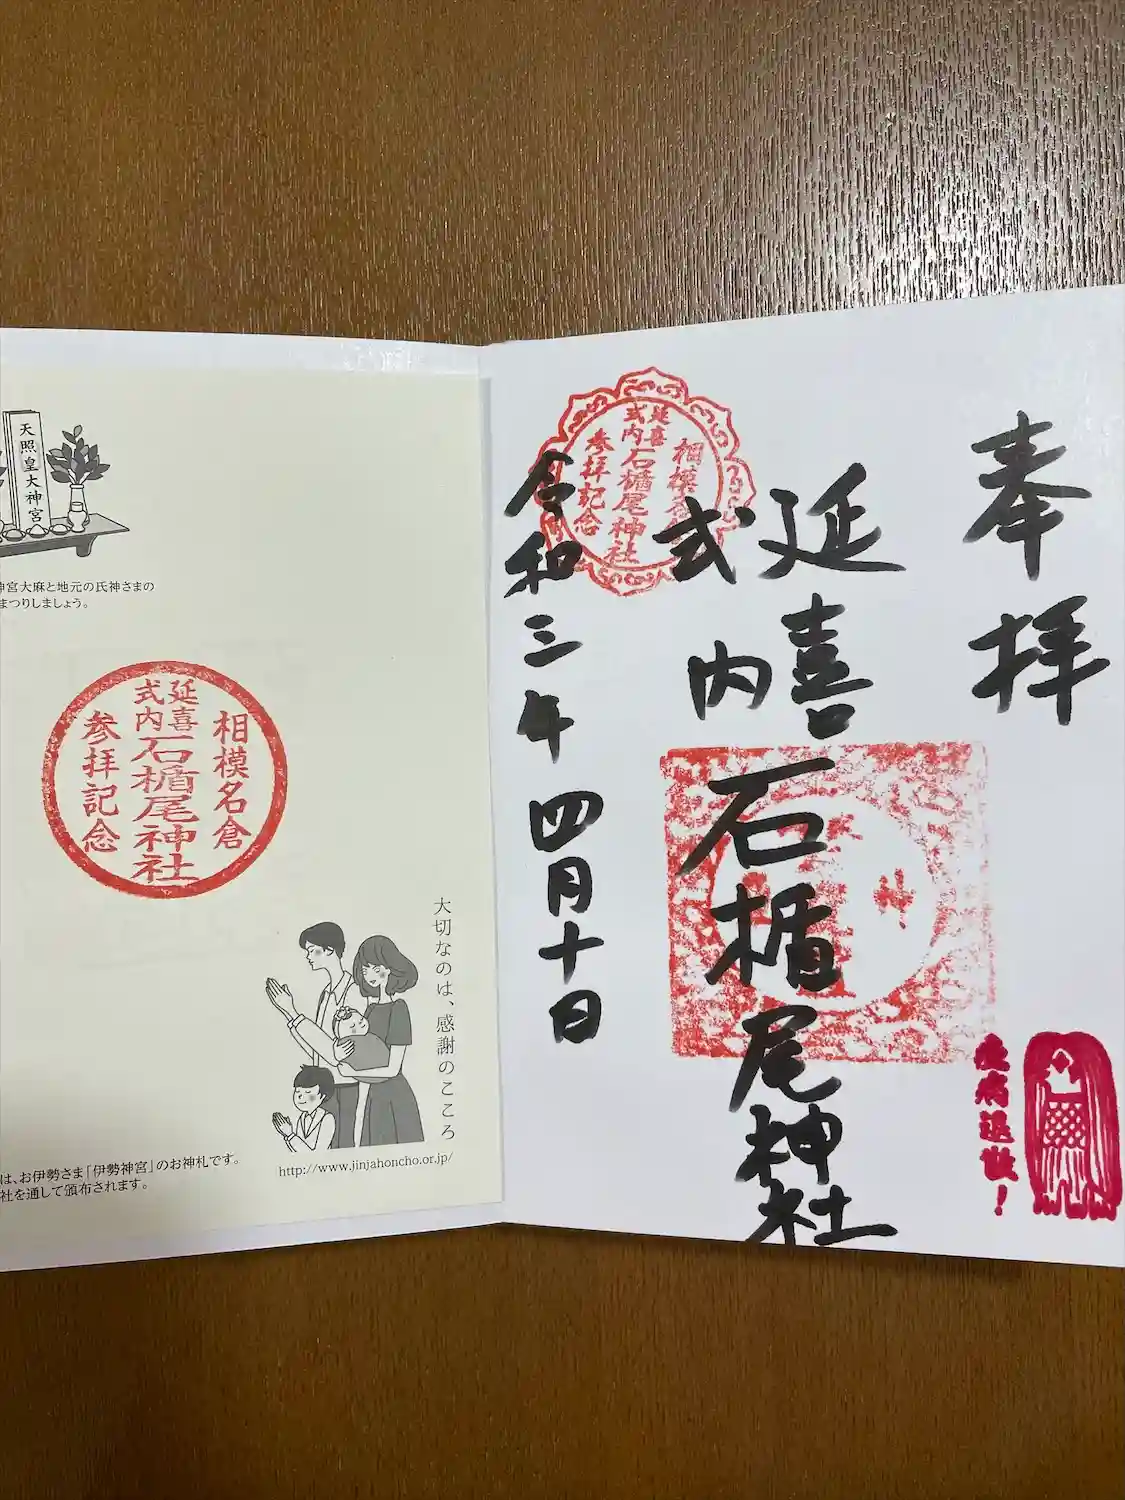 奉拝
延喜
式内
石楯尾神社
令和三年四月十日
相模名倉
延喜
式内
石楯尾神社
参拝記念
疫病退散！
天照皇大神宮
神宮大麻と地元の氏神さまの
まつりしましょう。
相模名倉
延喜
式内
石楯尾神社
参拝記念
大切なのは、感謝のこころ
は、お伊勢さま「伊勢神宮」のお神札です。
社を通して頒布されます。
http://www.jinjahoncho.or.jp/